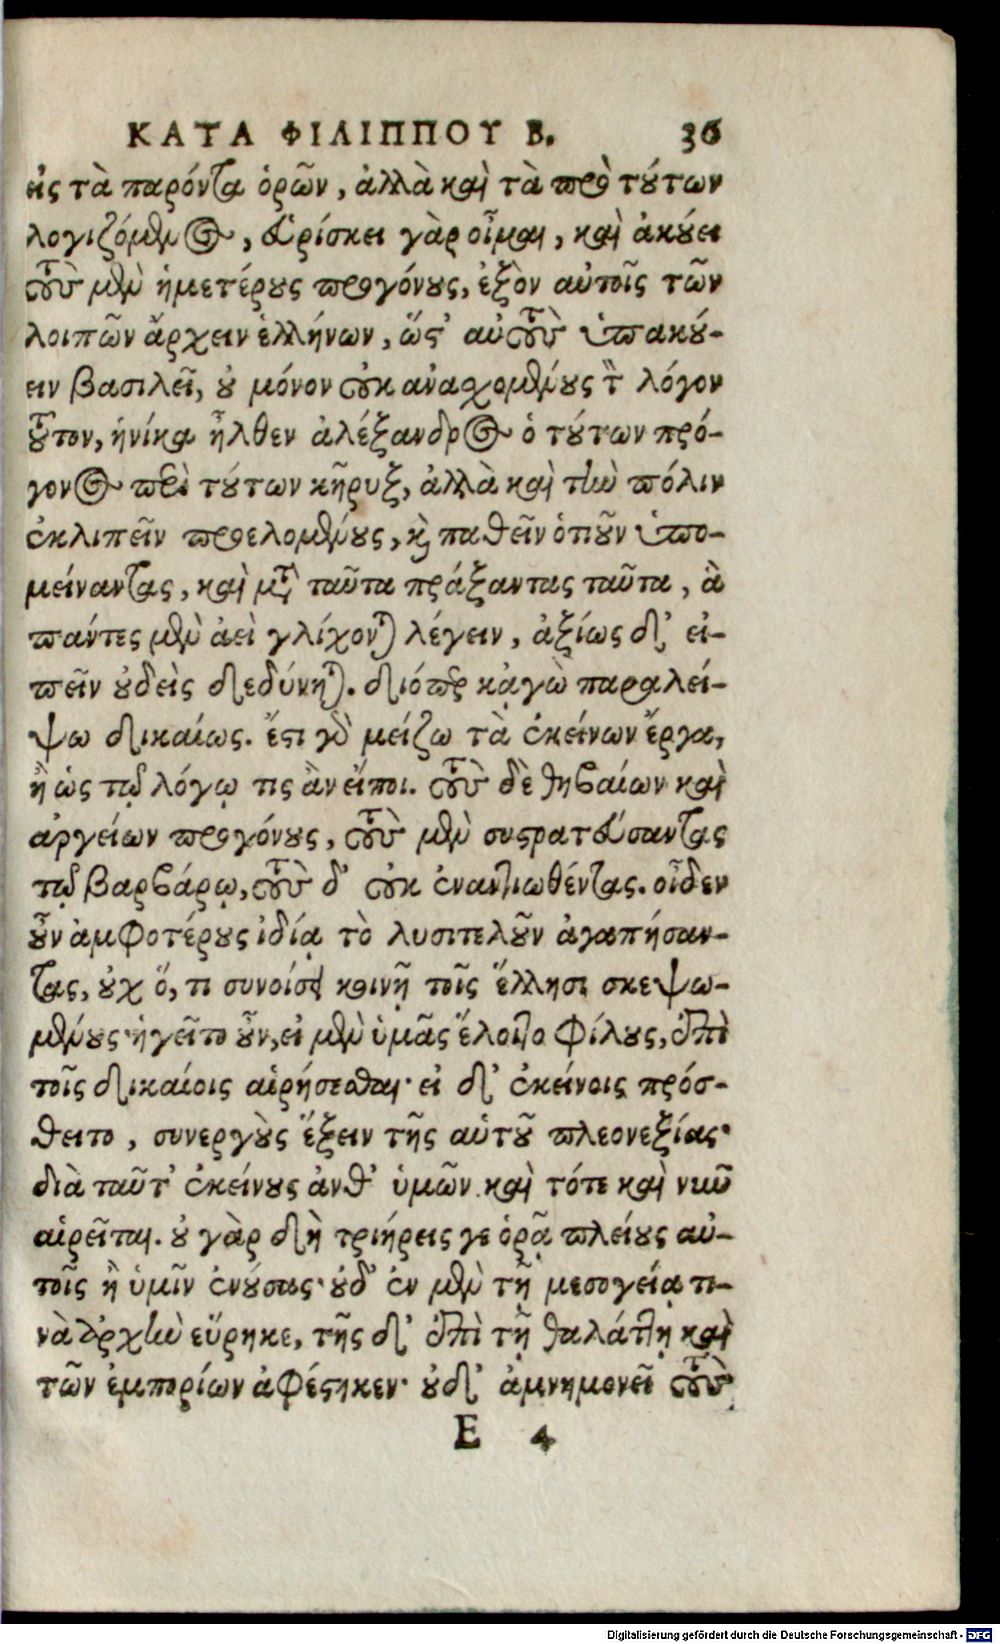 ΚΑΤΑ ΦΙΛΙΠΠΟΥ Β. 36
εἰς τὰ παρόντα ὁρῶν, ἀλλὰ καὶ τὰ πρὸ τούτων
λογιζόμενος, εὑρίσκει γὰρ οἶμαι, καὶ ἀκούει
τοὺς μὲν ἡμετέρους προγόνους, ἐξὸν αὐτοῖς τῶν
λοιπῶν ἄρχειν ἑλλήνων, ὥστ' αὐτοὺς ὑπακού-
ειν βασιλεῖ, οὐ μόνον οὐκ ἀνασχομένους τὸν λόγον
τοῦτον, ἡνίκα ἦλθεν ἀλέξανδρος ὁ τούτων πρό-
γονος περὶ τούτων κῆρυξ, ἀλλὰ καὶ τὴν πόλιν
ἐκλιπεῖν προελομένους, καὶ παθεῖν ὁτιοῦν ὑπο-
μείναντας, καὶ μετὰ ταῦτα πράξαντας ταῦτα, ἃ
πάντες μὲν ἀεὶ γλίχονται λέγειν, ἀξίως δ' εἰ-
πεῖν οὐδεὶς δεδύνηται. διόπερ κᾀγὼ παραλεί-
ψω δικαίως. ἔστι γὰρ μείζω τὰ ἐκείνων ἔργα,
ἢ ὡς τῷ λόγῳ τις ἂν εἴποι. τοὺς δὲ θηβαίων καὶ
ἀργείων προγόνους, τοὺς μὲν συστρατεύσαντας
τῷ βαρβάρῳ, τοὺς δ' οὐκ ἐναντιωθέντας. οἶδεν
οὖν ἀμφοτέρους ἰδίᾳ τὸ λυσιτελοῦν ἀγαπήσαν-
τας, οὐχ ὅ, τι συνοίσει κοινῇ τοῖς ἕλλησι σκεψω-
μένους· ἡγεῖτο οὖν, εἰ μὲν ὑμᾶς ἕλοιτο φίλους, ἐπὶ
τοῖς δικαίοις αἱρήσεσθαι· εἰ δ' ἐκείνοις πρόσ-
θειτο, συνεργοὺς ἕξειν τῆς αὑτοῦ πλεονεξίας·
διὰ ταῦτ' ἐκείνους ἀνθ' ὑμῶν καὶ τότε καὶ νῦν
αἱρεῖται. οὐ γὰρ δὴ τριήρεις γε ὁρᾷ πλείους αὐ-
τοῖς ἢ ὑμῖν ἐνούσας· οὐδ' ἐν μὲν τῇ μεσογείᾳ τι-
νὰ ἀρχὴν εὕρηκε, τῆς δ' ἐπὶ τῇ θαλάττῃ καὶ
τῶν ἐμπορίων ἀφέστηκεν· οὐδ' ἀμνημονεῖ τοὺς
E 4
Digitalisierung gefördert durch die Deutsche Forschungsgemeinschaft - DFG